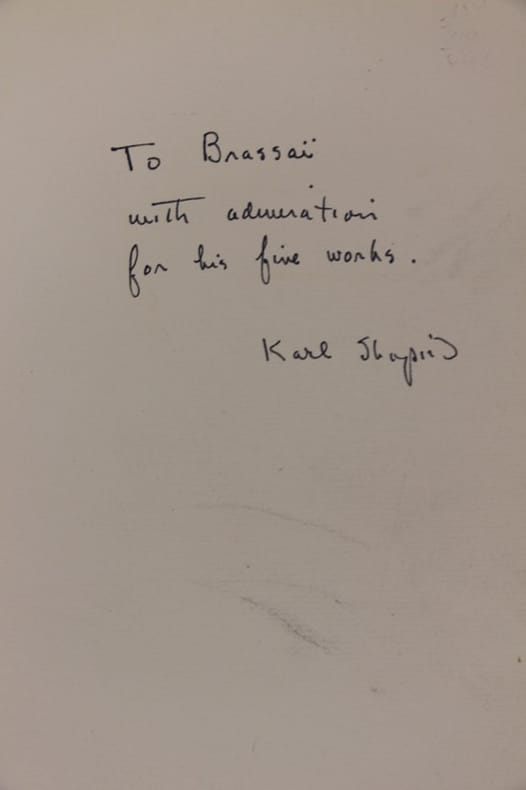 To Brassaï
with admiration
for his fine works.
Karl Shapiro